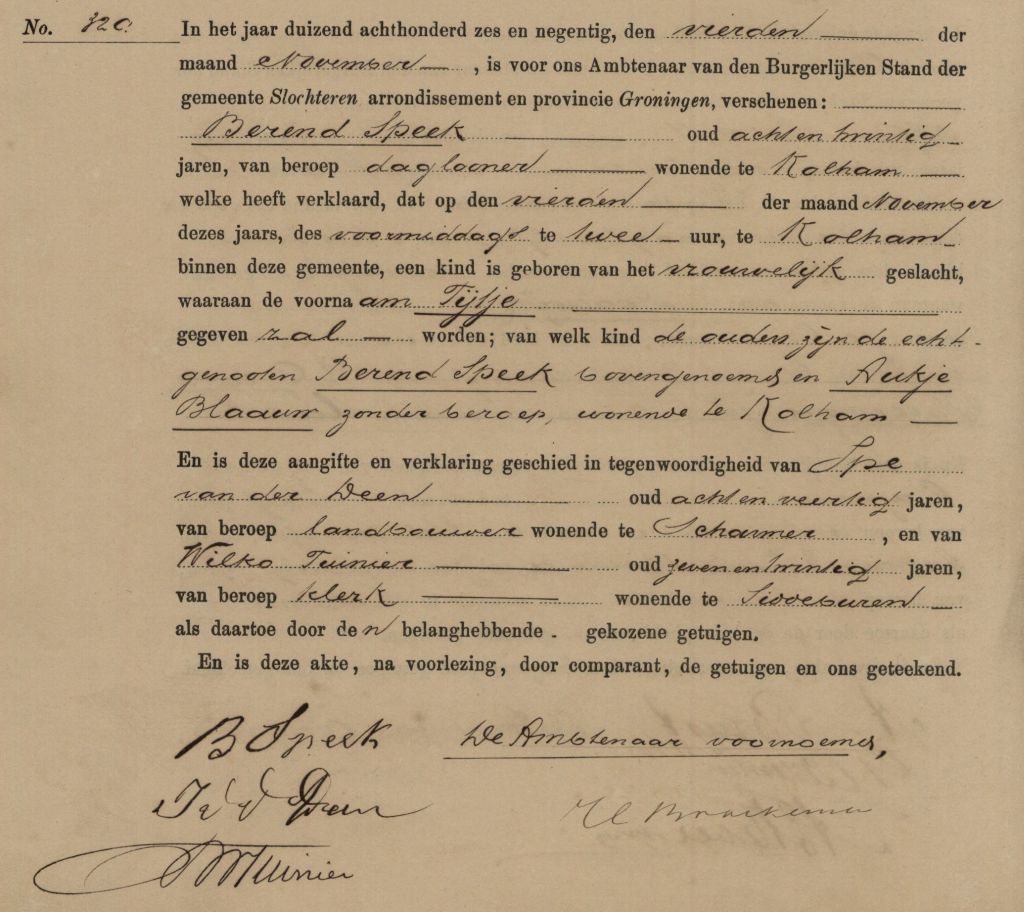 No. 320.
In het jaar duizend achthonderd zes en negentig, den vierden der
maand November, is voor ons Ambtenaar van den Burgerlijken Stand der
gemeente Slochteren arrondissement en provincie Groningen, verschenen:
Berend Speek oud acht en twintig
jaren, van beroep daglooner wonende te Kolham
welke heeft verklaard, dat op den vierden der maand November
dezes jaars, des voormiddags te twee uur, te Kolham
binnen deze gemeente, een kind is geboren van het vrouwelijk geslacht,
waaraan de voornaam Tijtje
gegeven zal worden; van welk kind de ouders zijn de echt-
genooten Berend Speek bovengenoemd en Aukje
Blaauw zonder beroep, wonende te Kolham
En is deze aangifte en verklaring geschied in tegenwoordigheid van Ipe
van der Deen oud acht en veertig jaren,
van beroep landbouwer wonende te Scharmer, en van
Wilko Tuinier oud zeven en twintig jaren,
van beroep klerk wonende te Siddeburen
als daartoe door den belanghebbende. gekozene getuigen.
En is deze akte, na voorlezing, door comparant, de getuigen en ons geteekend.
B Speek De Ambtenaar voornoemd,
I v d Deen
W Tuinier